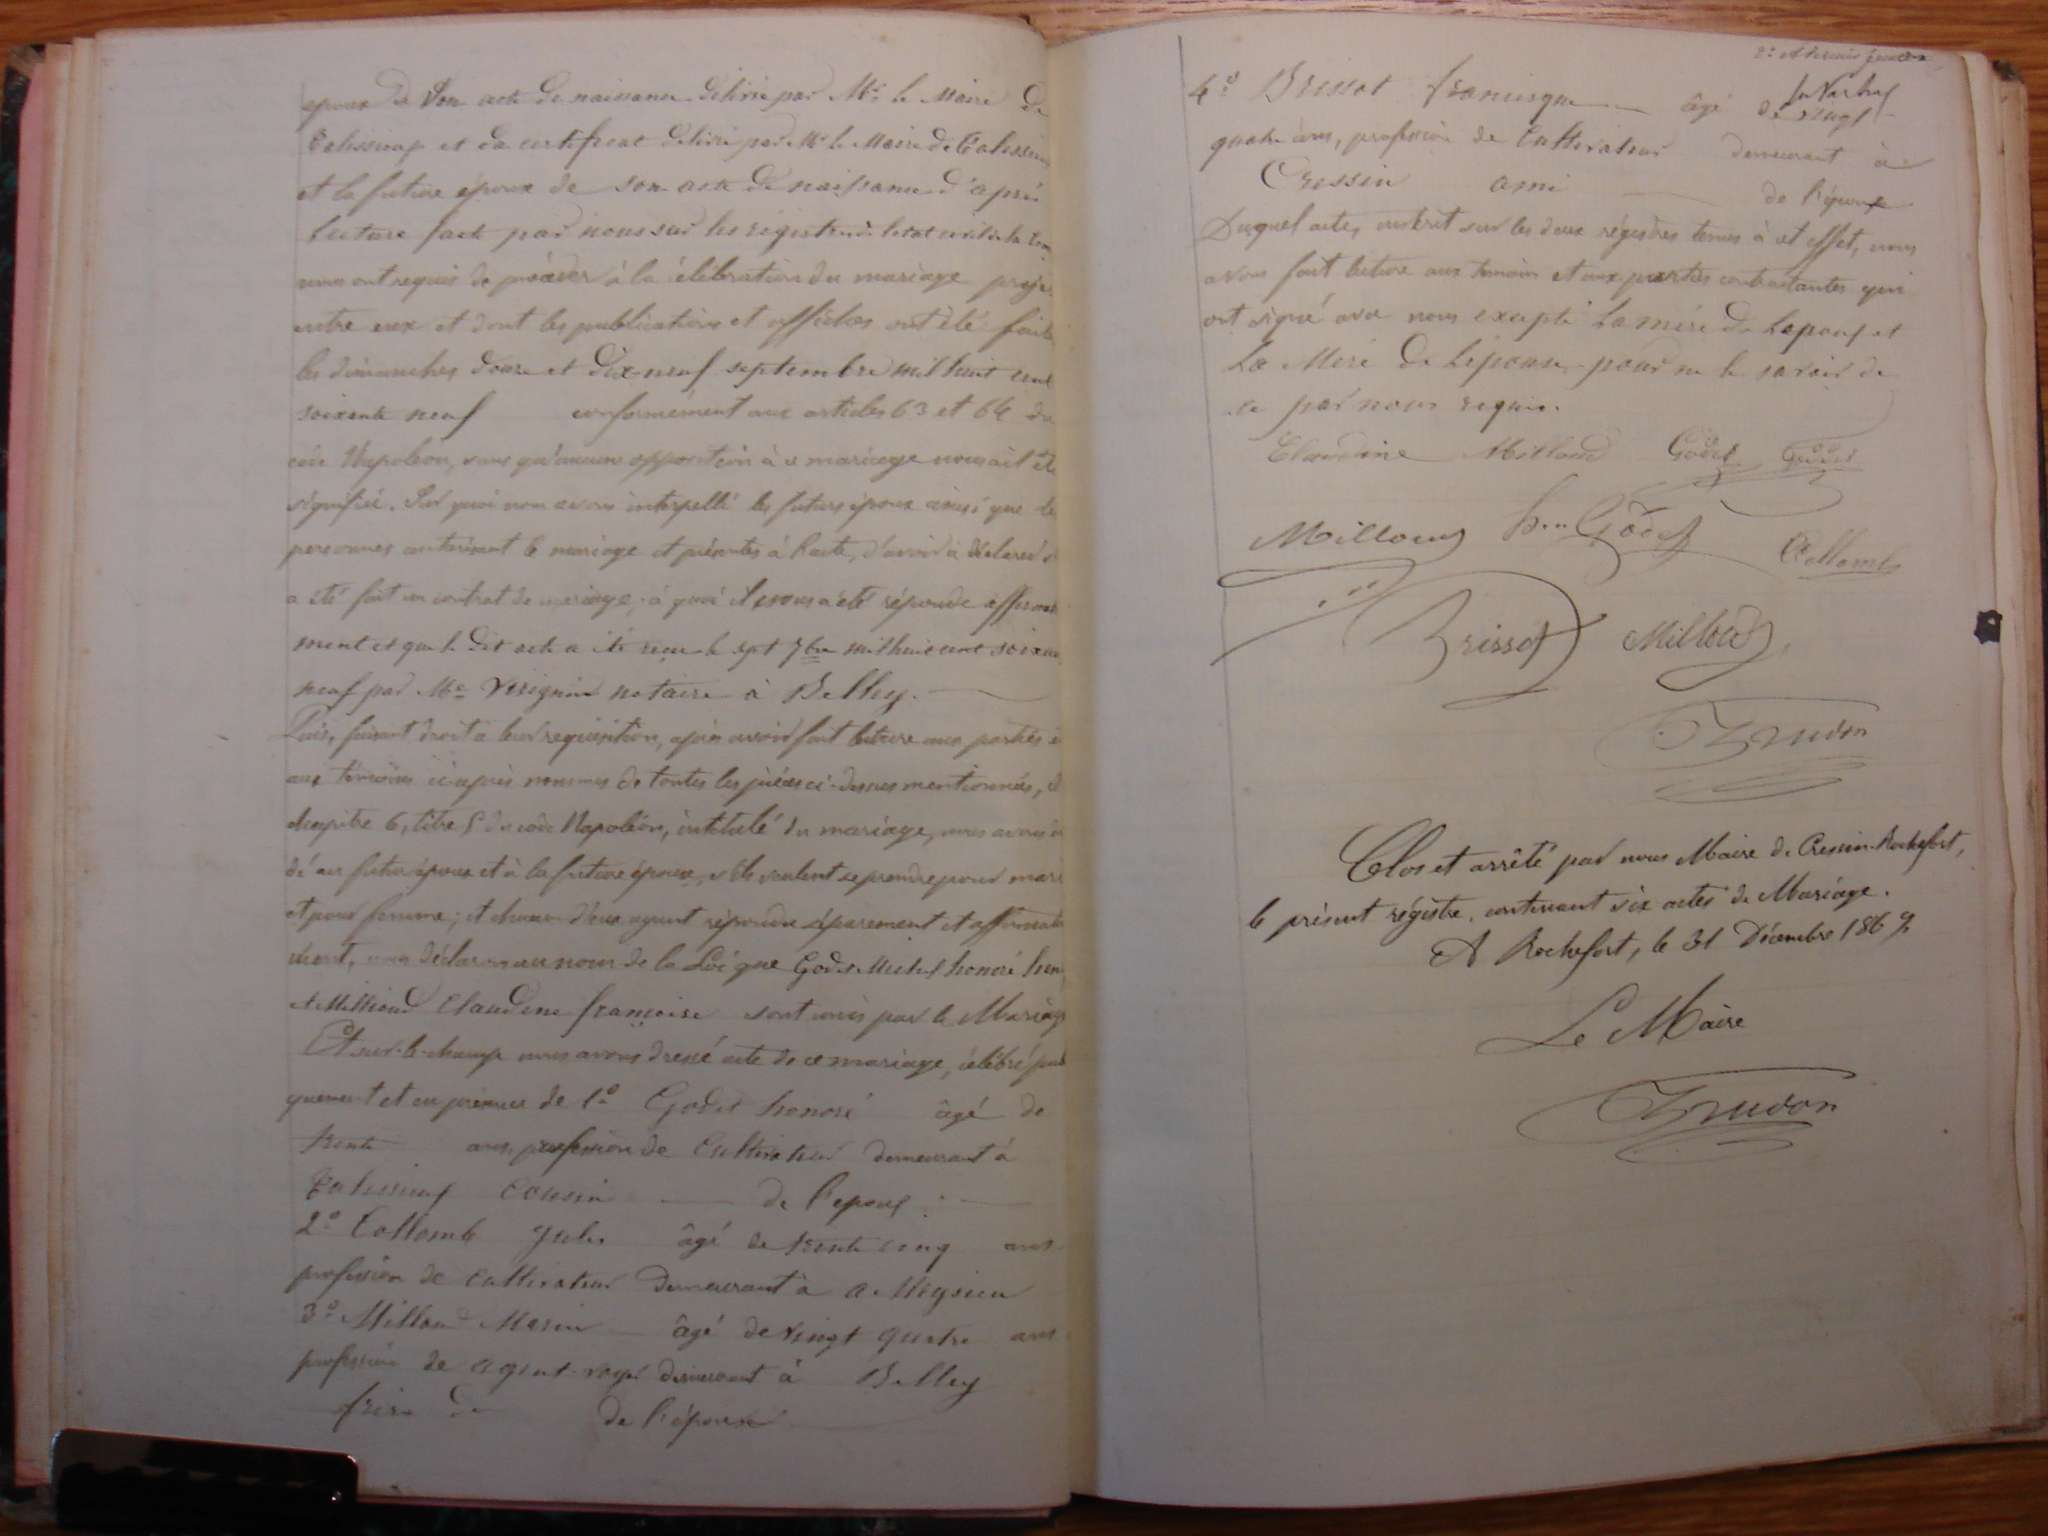 epoux de Son acte de naissance délivré par Mr le Maire de
Talissieux et du certificat délivré par Mr le Maire de Talissieux
et la future épouse de son acte de naissance d'après
lecture faite par nous sur les registres de l'état civil de la Com
nous ont requis de procéder à la célébration du mariage projeté
entre eux et dont les publications et affiches ont été faites
les dimanches douze et dix-neuf septembre mil huit cent
soixante neuf conformément aux articles 63 et 64 du
code Napoléon, sans qu'aucune opposition à ce mariage nous ait été
signifiée. Sur quoi nous avons interpellé les futurs époux ainsi que les
personnes autorisant le mariage et présentes à l'acte, d'avoir à déclarer s'il
a été fait un contrat de mariage, à quoi il nous a été répondu affirmati
ment et que le dit acte a été reçu le sept 7bre mil huit cent soixante
neuf par Me notaire à Belley.
Puis, faisant droit à leur réquisition, après avoir fait lecture aux parties et
aux témoins ci-après nommés de toutes les pièces ci-dessus mentionnées, et
chapitre 6, titre 5 du code Napoléon, intitulé du mariage, nous avons
dé au futur époux et à la future épouse, s'ils veulent se prendre pour mari
et pour femme; et chacun d'eux ayant répondu séparément et affirmative
ment, nous déclarons au nom de la Loi que Godet Michel honoré
et Milloud Claudine françoise sont unis par le Mariage
Et sur-le-champ nous avons dressé acte de ce mariage, célébré publi
quement et en présence de 1o Godet honoré âgé de
trente ans, profession de Cultivateur demeurant à
Talissieux Cousin de l'epoux
2o Collomb Jules âgé de trente cinq ans
profession de Cultivateur demeurant à Meysieu
3o Milloud Marin âgé de vingt quatre ans
profession de agent-voyer demeurant à Belley
frère de de l'épouse
4o Brissot francisque âgé de vingt
quatre ans, profession de Cultivateur demeurant à
Cressin ami de l'épouse
Duquel acte, inscrit sur les deux régistres tenus à cet effet, nous
avons fait lecture aux témoins et aux parties contractantes qui
ont signé avec nous excepté la mère de Lepoux et
La Mère de Lépouse pour ne le savoir de
ce par nous requis.
Claudine Milloud Godet Godet
Milloud hré Godet Collomb
Brissot Milloud
Trudon
Clos et arrêté par nous Maire de Cressin-Rochefort,
le présent régistre, contenant six actes de Mariage.
A Rochefort, le 31 Décembre 1869
Le Maire
Trudon